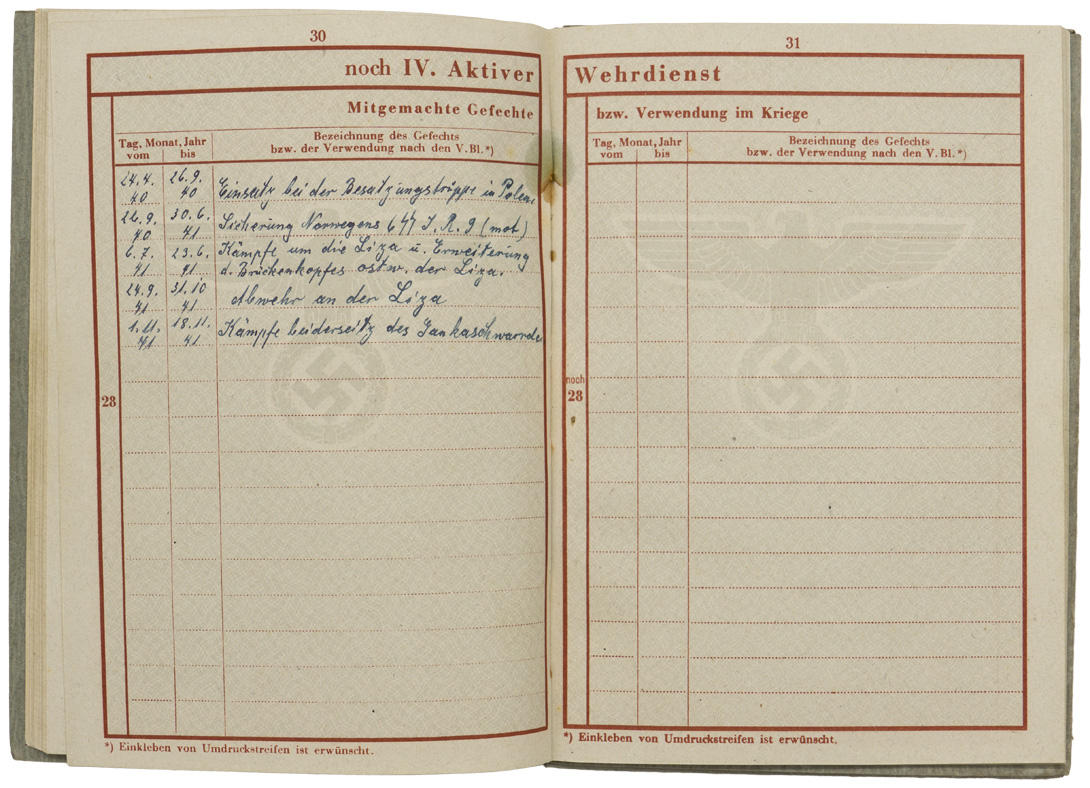 30
noch IV. Aktiver
Mitgemachte Gefechte
Tag, Monat, Jahr
vom bis
Bezeichnung des Gefechts
bzw. der Verwendung nach den V. Bl.*)
24.4. 26.9. Einsatz bei der Besatzungstruppe in Polen.
40 40
26.9. 30.6. Sicherung Norwegens I. R. 9 (mot)
40 41
6.7. 23.6. Kämpfe um die Liza u. Erweiterung
41 41 d. Brückenkopfes ostw. der Liza.
24.9. 31.10 Abwehr an der Liza
41 41
1.11. 18.11. Kämpfe beiderseitz des
41 41
28
*) Einkleben von Umdruckstreifen ist erwünscht.
31
Wehrdienst
bzw. Verwendung im Kriege
Tag, Monat, Jahr
vom bis
Bezeichnung des Gefechts
bzw. der Verwendung nach den V. Bl.*)
noch
28
*) Einkleben von Umdruckstreifen ist erwünscht.